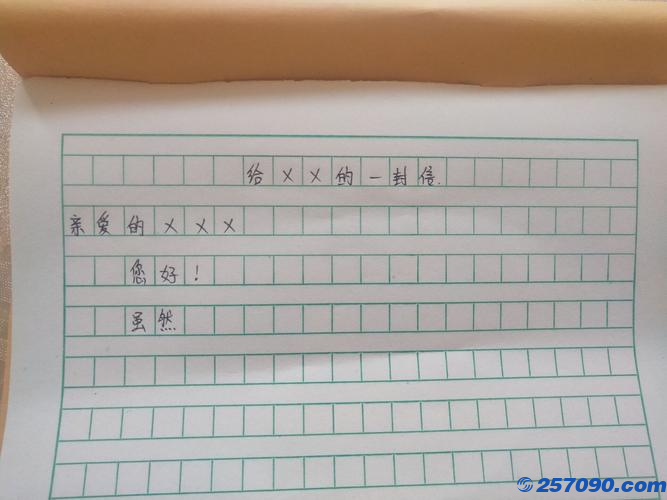 给××的一封信.
亲爱的×××
您好!
虽然
257090.com